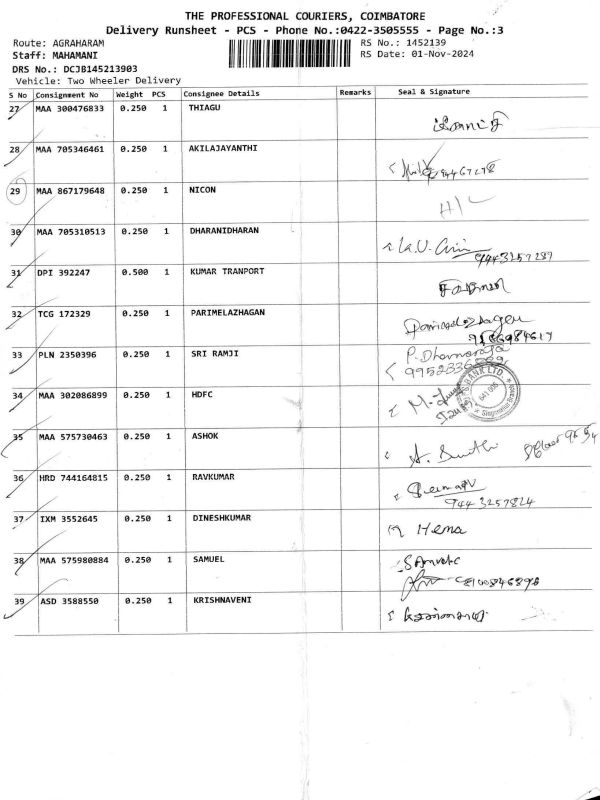 THE PROFESSIONAL COURIERS, COIMBATORE
Delivery Runsheet - PCS - Phone No.:0422-3505555 - Page No.:3
Route: AGRAHARAM RS No.: 1452139
Staff: MAHAMANI RS Date: 01-Nov-2024
DRS No.: DCJB145213903
Vehicle: Two Wheeler Delivery
S No Consignment No Weight PCS Consignee Details Remarks Seal & Signature
27 MAA 300476833 0.250 1 THIAGU
28 MAA 705346461 0.250 1 AKILAJAYANTHI
29 MAA 867179648 0.250 1 NICON
30 MAA 705310513 0.250 1 DHARANIDHARAN
9443257287
31 DPI 392247 0.500 1 KUMAR TRANPORT
32 TCG 172329 0.250 1 PARIMELAZHAGAN
33 PLN 2350396 0.250 1 SRI RAMJI
P. Dharmaraja
34 MAA 302086899 0.250 1 HDFC
BANK LTD.
641 005
Singanallur Branch
35 MAA 575730463 0.250 1 ASHOK
36 HRD 744164815 0.250 1 RAVKUMAR
9443257824
37 IXM 3552645 0.250 1 DINESHKUMAR
Hema
38 MAA 575980884 0.250 1 SAMUEL
39 ASD 3588550 0.250 1 KRISHNAVENI